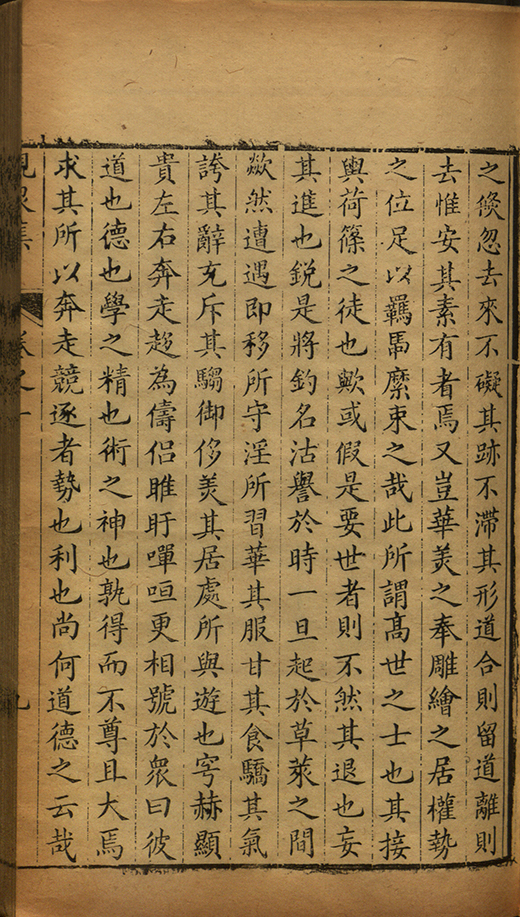 之倐忽去來不礙其跡不滯其形道合則留道離則
去惟安其素有者焉又豈華美之奉雕繪之居權勢
之位足以羈馽縻束之哉此所謂髙世之士也其接
輿荷篠之徒也歟或假是要世者則不然其退也妄
其進也鋭是將釣名沽譽於時一旦起於草萊之間
歘然遭遇即移所守淫所習華其服甘其食驕其氣
誇其辭充斥其騶御侈美其居處所與遊也穹赫顯
貴左右奔走趍為儔侣睢盱嘽咺更相號於衆曰彼
道也德也學之精也術之神也孰得而不尊且大焉
求其所以奔走競逐者勢也利也尚何道德之云哉